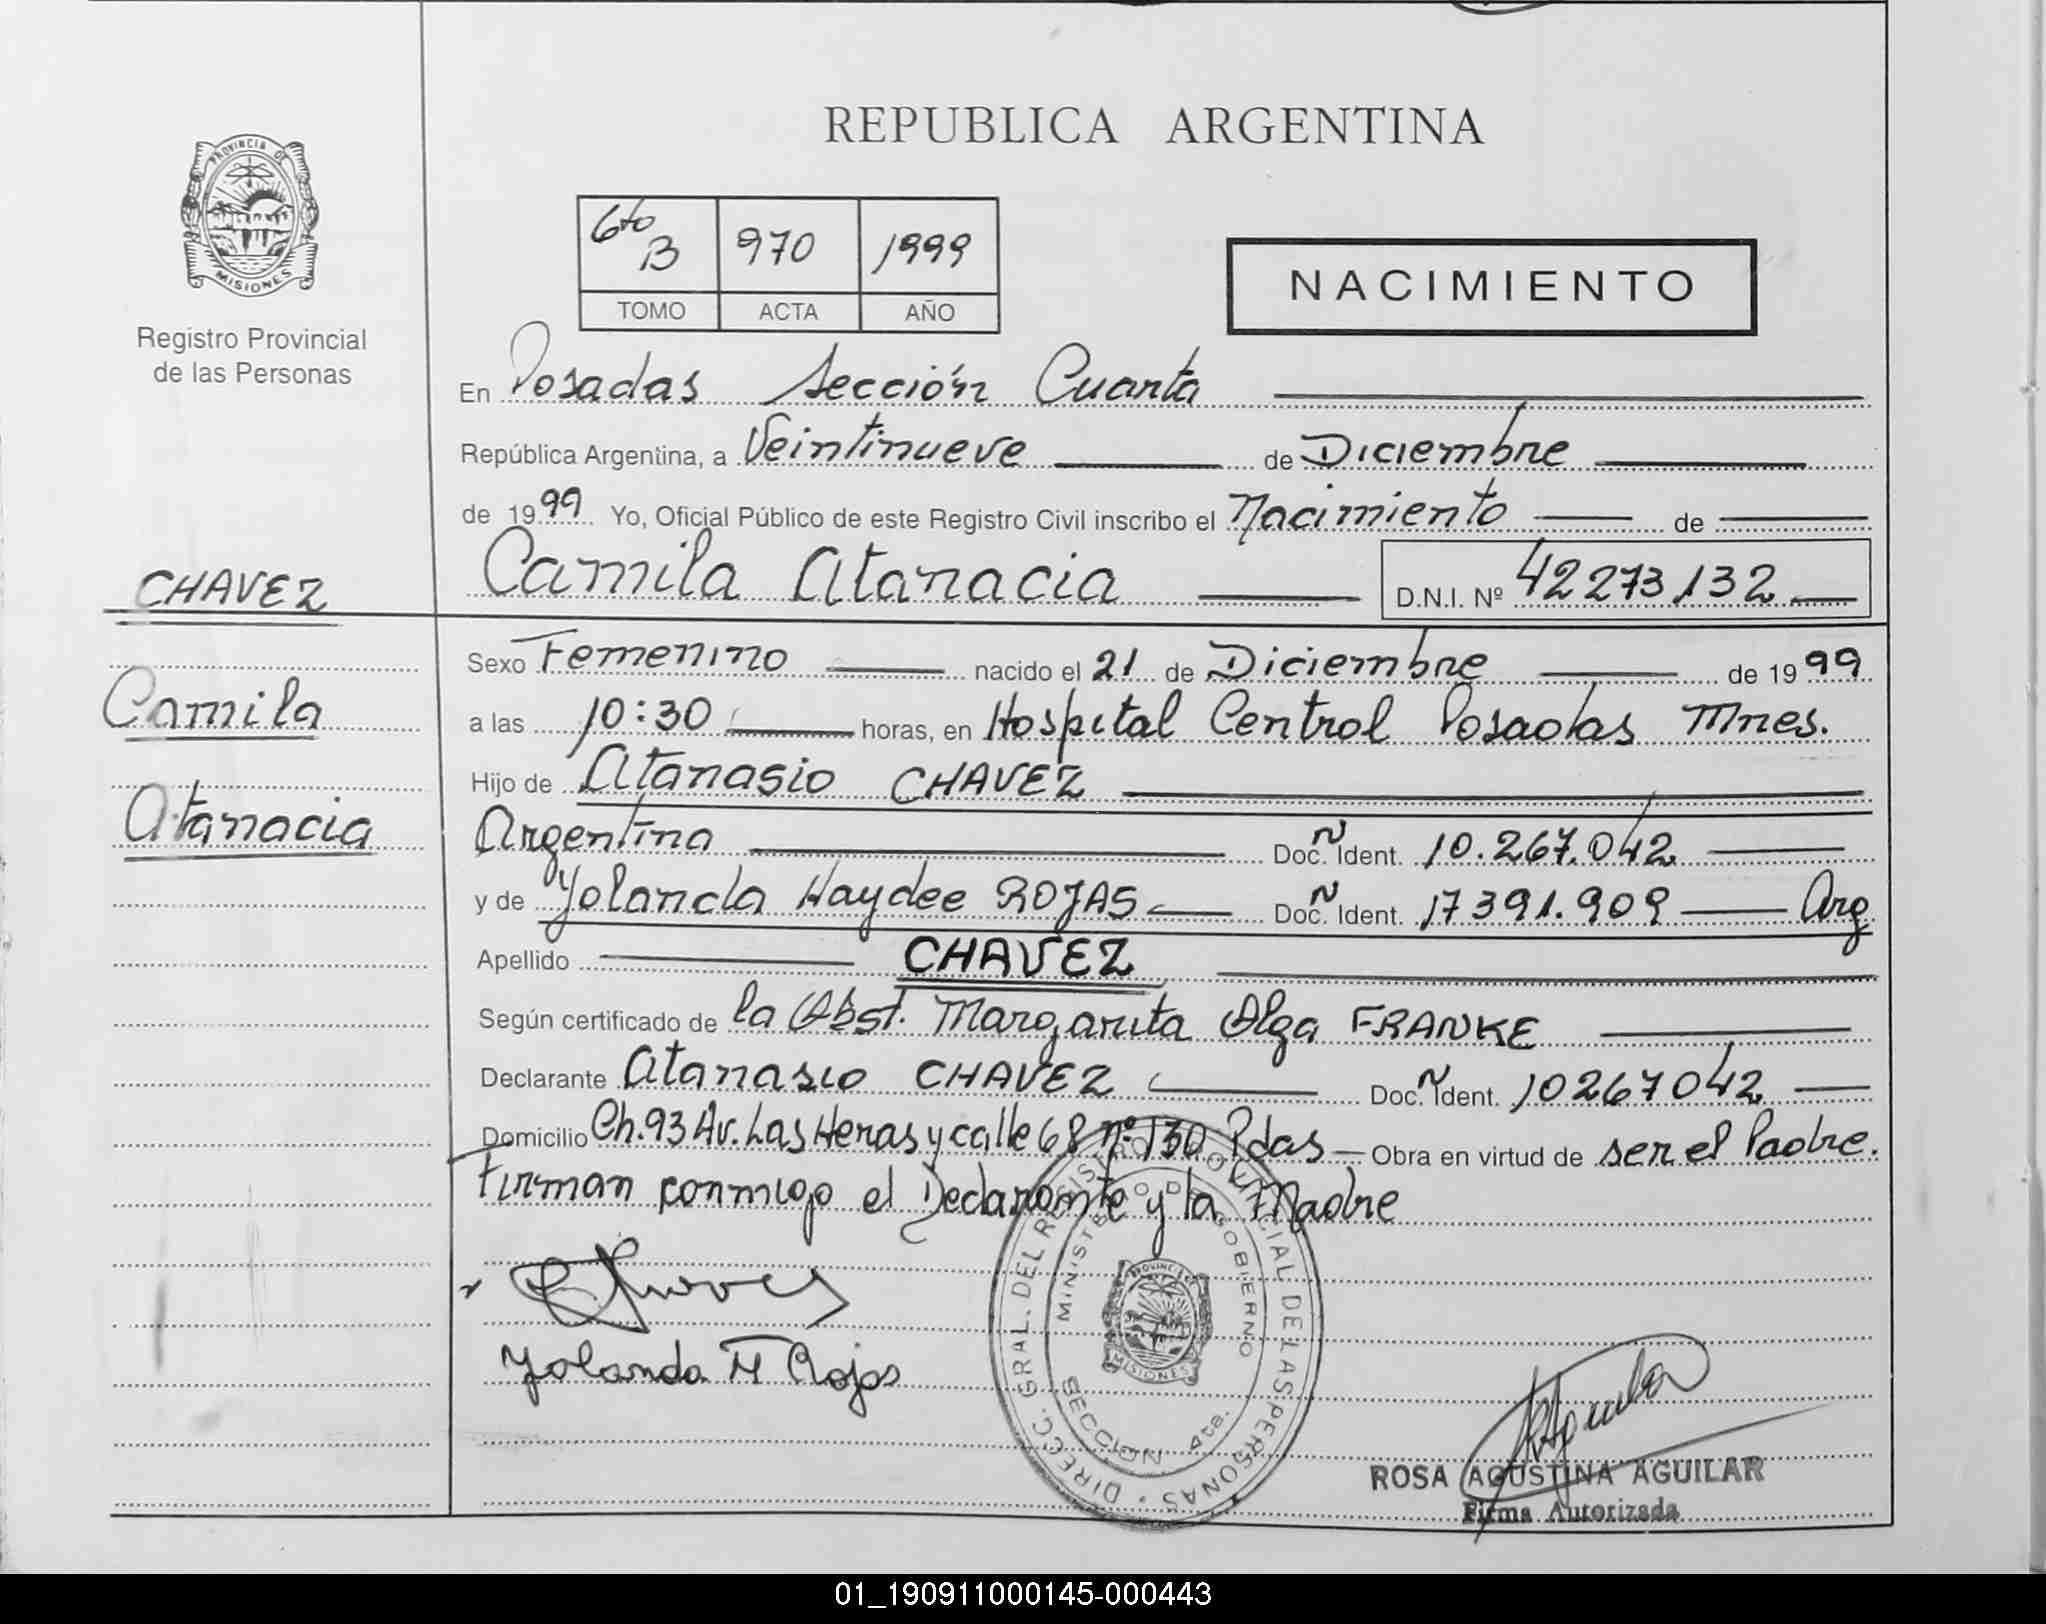 REPUBLICA ARGENTINA
PROVINCIA DE
MISIONES
Registro Provincial
de las Personas
6to B 970 1999
TOMO ACTA AÑO
NACIMIENTO
En Posadas Sección Cuarta
República Argentina, a Veintinueve de Diciembre
de 1999 Yo, Oficial Público de este Registro Civil inscribo el Nacimiento de
Camila Atanacia D.N.I. Nº 42273.132
CHAVEZ
Camila
Atanacia
Sexo Femenino nacido el 21 de Diciembre de 1999
a las 10:30 horas, en Hospital Central Posadas Mnes.
Hijo de Atanasio CHAVEZ
Argentina Doc. Ident. 10.267.042
y de Yolanda Haydee ROJAS Doc. Ident. 17391.909 Arg
Apellido CHAVEZ
Según certificado de la Obst. Margarita Olga FRANKE
Declarante Atanasio CHAVEZ Doc. Ident. 10267042
Domicilio Ch.93 Av. Las Heras y calle 68 nº 130 Pdas Obra en virtud de ser el Padre.
Firman conmigo el Declarante y la Madre
Yolanda H Rojas
DIRECC. GRAL. DEL REGISTRO PROVINCIAL DE LAS PERSONAS
MINISTERIO DE GOBIERNO
PROVINCIA DE
MISIONES
SECCION 4ta.
ROSA AGUSTINA AGUILAR
Firma Autorizada
01_190911000145-000443